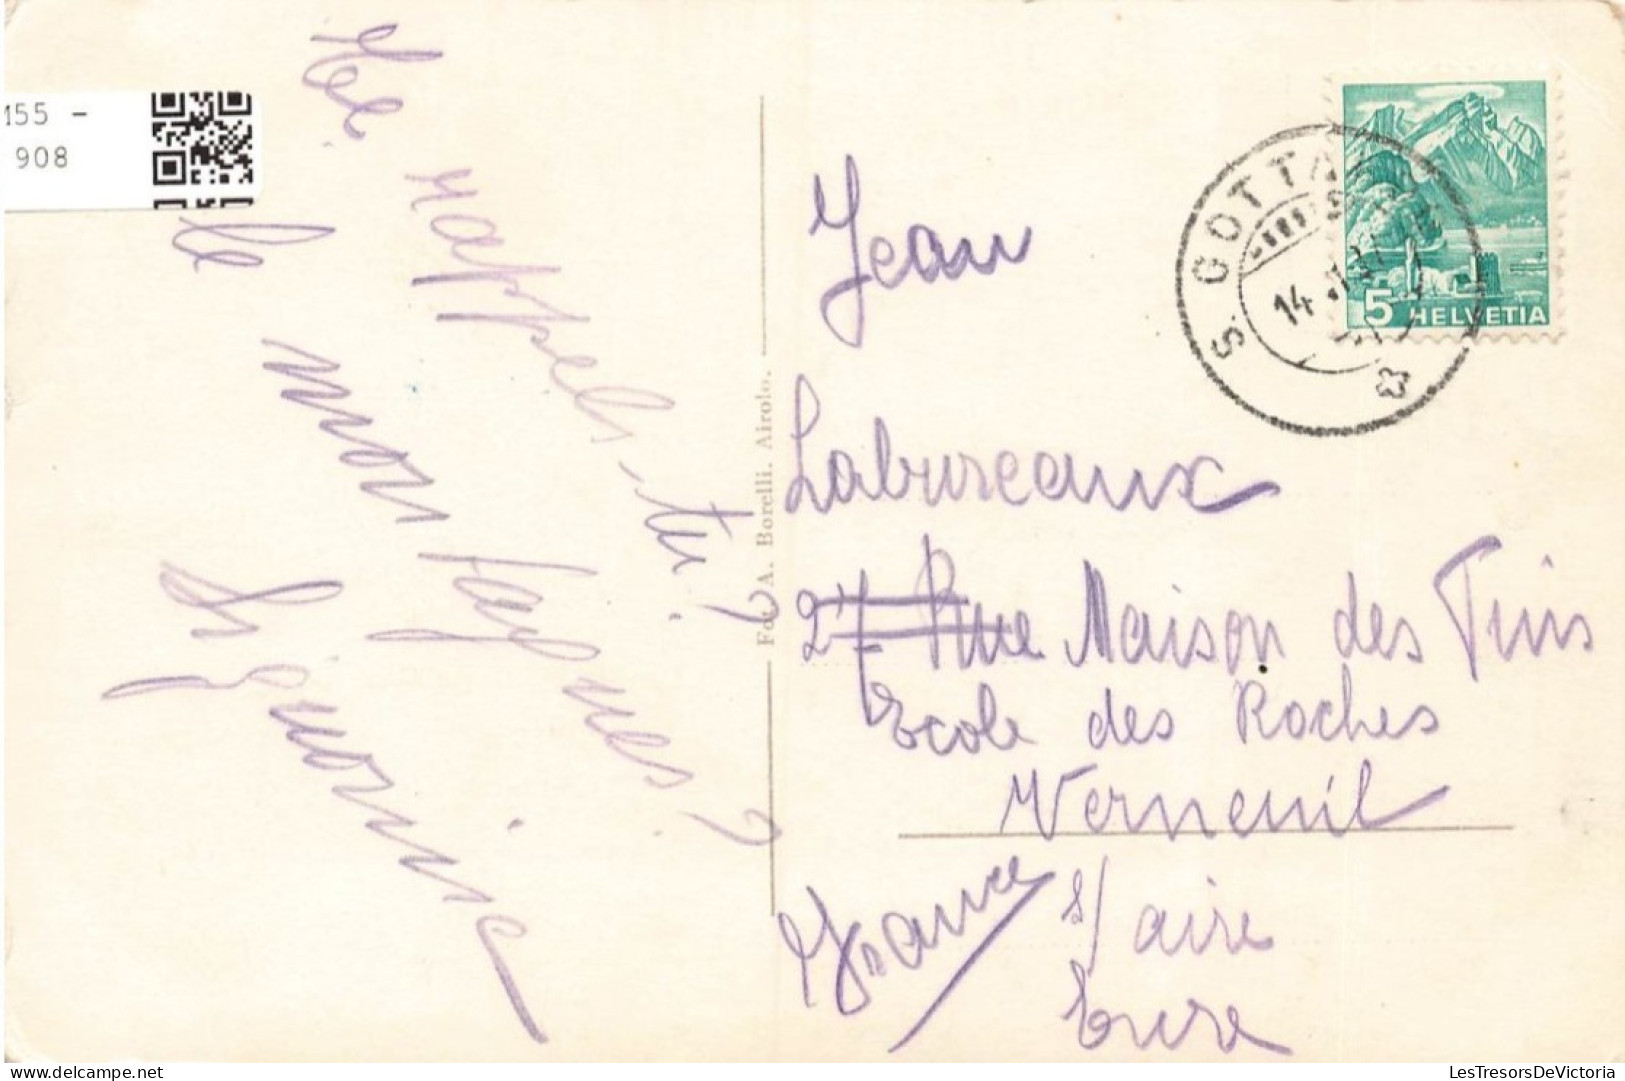 155 -
908
Te rappels-tu?
le montagnes?
Jean
Labureaux
27 Rue Maison des Pins
Ecole des Roches
Verneuil
s/aire
Eure
France
Fot. A. Borelli. Airolo.
S. GOTTARDO
14
5 HELVETIA
delcampe.net
LesTresorsDeVictoria